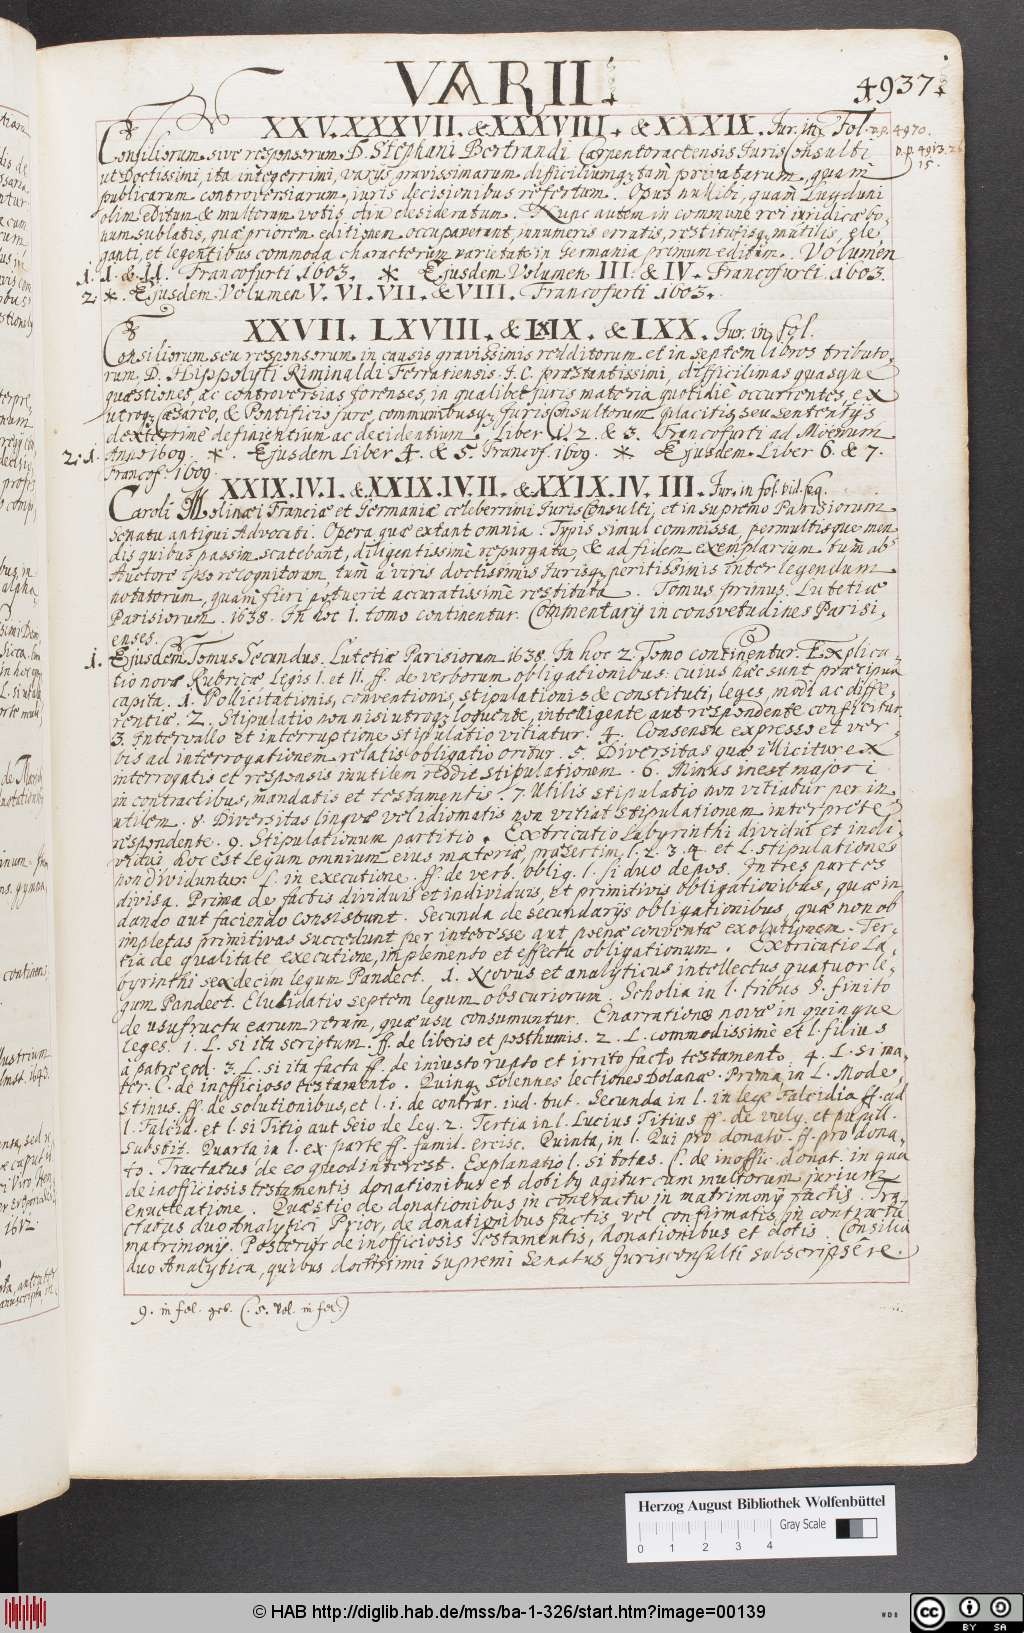 VARII.
4937.
XXV. XXXVII. & XXXVIII. & XXXIX. Jur. in Fol.
p. p. 4970.
p. p. 4913. 
15.
Consiliorum sive responsorum D. Stephani Bertrandi Carpentoractensis JurisConsulti
ut Doctissimi, ita integerrimi, varijs gravissimarum difficiliumq; tam privatarum, quam
publicarum controversiarum, iuris decisionibus refertum. Opus nullibi, quam Lugduni
olim editum & multorum votis diu desideratum. Nunc autem in commune rei iuridicae bo-
num sublatis, quae priorem editionem occuparerant, innumeris erratis, restitutisq; mutilis, ele-
ganti, et legentibus commoda characterum varietate in Germania primum editum. Volumen
1. I. & II. Francofurti 1603. * Ejusdem Volumen III. & IV. Francofurti 1603.
2. *. Ejusdem Volumen V. VI. VII. & VIII. Francofurti 1603.
XXVII. LXVIII. & LXIX. & LXX. Jur. in fol.
Consiliorum seu responsorum in causis gravissimis redditorum et in septem libros tributo-
rum, D. Hippolyti Riminaldi Ferrariensis J. C. praestantissimi, difficilimas quasque
quaestiones, ac controversias forenses, in qualibet juris materia quotidie occurrentes, ex
utroq; Caesareo, & Pontificio jure, communibusq; JurisConsultorum placitis, seu sententijs
dexterrimè definientium ac decidentium. Liber 1. 2. & 3. Francofurti ad Moenum
2. 1. Anno 1609. *. Ejusdem Liber 4. & 5. Francof. 1609. * Ejusdem Liber 6. & 7.
Francof. 1609.
XXIX. IV. I. & XXIX. IV. II. & XXIX. IV. III. Jur. in fol. vid. seq.
Caroli Molinaei Franciae et Germaniae celeberrimi JurisConsulti, et in supremo Parisiorum
Senatu antiqui Advocati. Opera quae extant omnia. Typis simul commissa, permultisque men-
dis quibus passim scatebant, diligentissimè repurgata, & ad fidem exemplarium tum ab
Auctore ipso recognitorum, tum à viris doctissimis Jurisq; peritissimis inter legendum
notatorum, quam fieri potuerit accuratissimè restituta. Tomus primus. Lutetiae
Parisiorum. 1638. In hoc 1. tomo continentur. Commentarij in consvetudines Parisi-
enses.
1. Ejusdem Tomus Secundus. Lutetiae Parisiorum 1638. In hoc 2. Tomo continentur. Explica-
tio novae Rubricae Legis I. et II. ff. de verborum obligationibus: cuius haec sunt praecipua
capita. 1. Pollicitationis, conventionis, stipulationis & constituti, leges, modi ac diffe-
rentiae. 2. Stipulatio non nisi utroq; loquente, intelligente aut respondente conficitur.
3. Intervallo et interruptione stipulatio vitiatur. 4. Consensu expresso et ver-
bis ad interrogationem relatis obligatio oritur. 5. Diversitas quae illicitur ex
interrogatis et responsis inutilem reddit stipulationem. 6. Minus inest majori
in contractibus, mandatis et testamentis. 7. Utilis stipulatio non vitiatur per in-
utilem. 8. Diversitas linguae vel idiomatis non vitiat stipulationem interprete
respondente. 9. Stipulationum partitio. Extricatio Labyrinthi dividui et indi-
vidui hoc est Legum omnium eius materiae, praesertim, l. 2. 3. 4. et l. stipulationes
non dividuntur. l. in executione. ff. de verb. oblig. l. si duo depos. In tres partes
divisa. Prima de factis dividuis et individuis, et primitivis obligationibus, quae in
dando aut faciendo consistunt. Secunda de secundarijs obligationibus, quae non ob
impletas primitivas succedunt per interesse aut poenae conventae exolutionem. Ter-
tia de qualitate executione, implemento et effectu obligationum. Extricatio La-
byrinthi sexdecim legum Pandect. 1. Novus et analyticus intellectus quatuor le-
gum Pandect. Elucidatio septem legum obscuriorum. Scholia in l. tribus §. finito
de usufructu earum rerum, quae usu consumuntur. Enarrationes novae in quinque
leges. 1. L. si ita scriptum. ff. de liberis et posthumis. 2. L. commodissimè et l. filius
à patre eod. 3. L. si ita facta ff. de iniusto rupto et irrito facto testamento. 4. L. si ma-
ter. C. de inofficioso testamento. Quinq; solennes lectiones Dolanae. Prima, in L. Mode-
stinus. ff. de solutionibus, et l. 1. de contrar. iud. tut. Secunda in l. in lege Falcidia ff. ad
l. Falcid. et l. si Titio aut Seio de Leg. 2. Tertia in l. Lucius Titius ff. de vulg. et pupill.
substit. Quarta in l. ex parte ff. famil. ercisc. Quinta, in l. Qui pro donato. ff. pro dona-
to. Tractatus de eo quod interest. Explanatio l. si totas. C. de inoffic. donat. in qua
de inofficiosis testamentis donationibus et dotibus agitur cum multorum jurium
enucleatione. Quaestio de donationibus in contractu in matrimonij factis. Tra-
ctatus duo Analytici Prior, de donationibus factis, vel confirmatis in contractu
matrimonij. Posterior de inofficiosis Testamentis, donationibus et dotis. Consilia
duo Analytica, quibus doctissimi supremi Senatus Jurisconsulti subscripsêre.
9. in fol. geb. (. 5. Vol. in fol.)
Herzog August Bibliothek Wolfenbüttel
Gray Scale
0 1 2 3 4
© HAB http://diglib.hab.de/mss/ba-1-326/start.htm?image=00139
WDB
CC BY SA